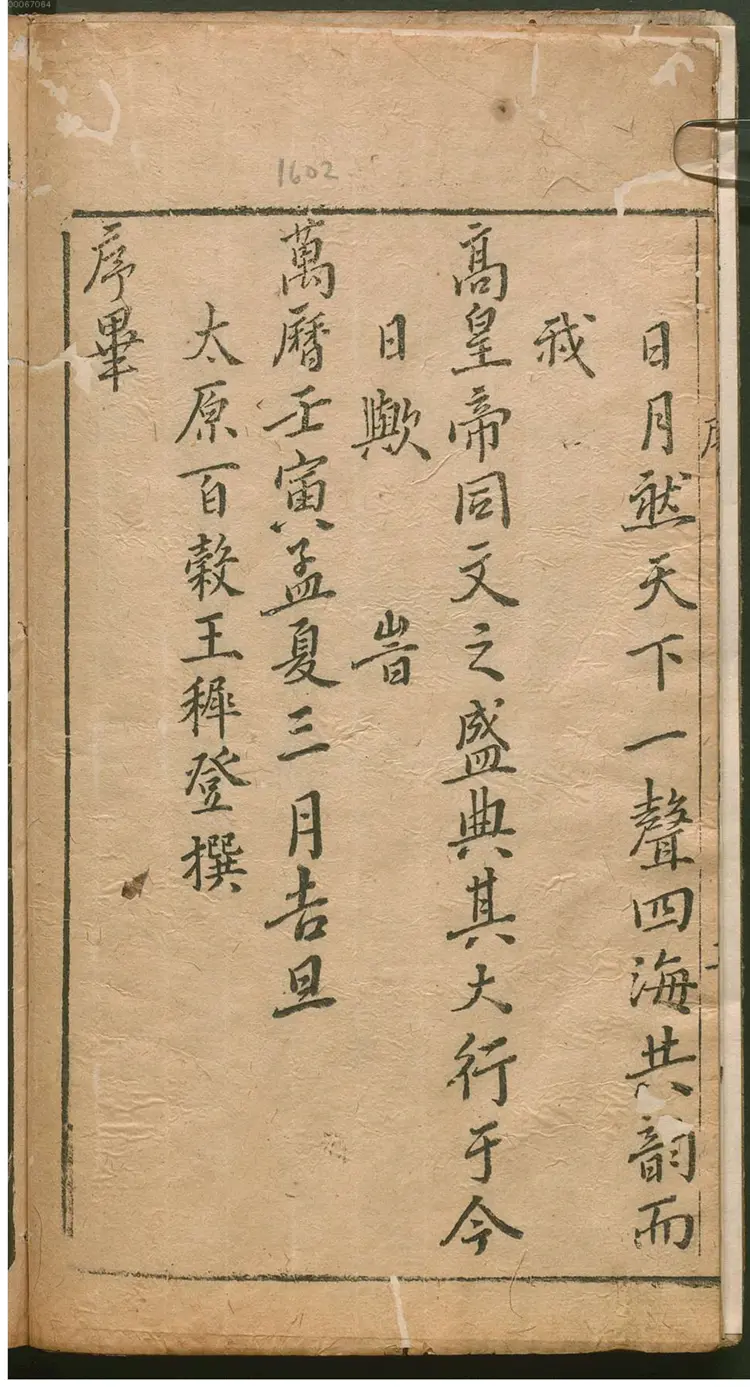 00067064
1602
日月然天下一聲四海共韻而
我
高皇帝同文之盛典其大行于今
日歟　旹
萬曆壬寅孟夏三月吉旦
太原百穀王穉登撰
序畢